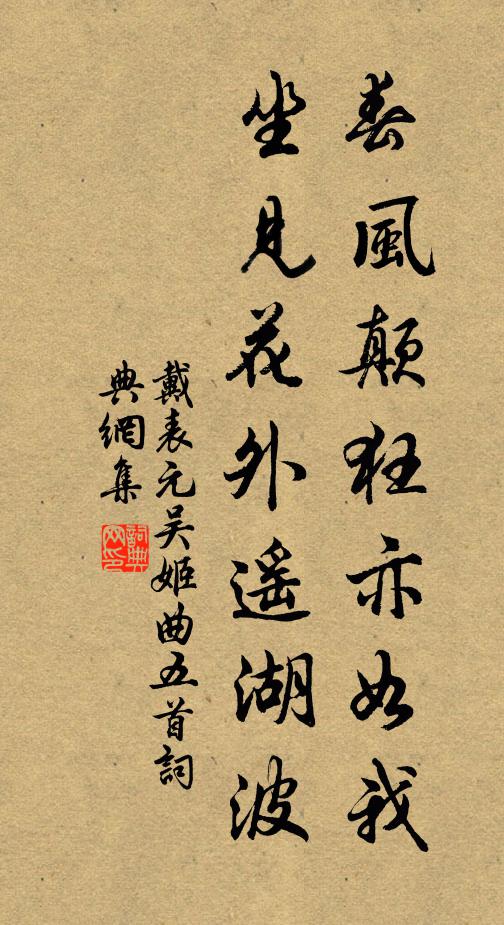 春風顛狂亦如我
坐見花外遥湖波
戴表元吴姬曲五首詞
典網集
詞典
网印